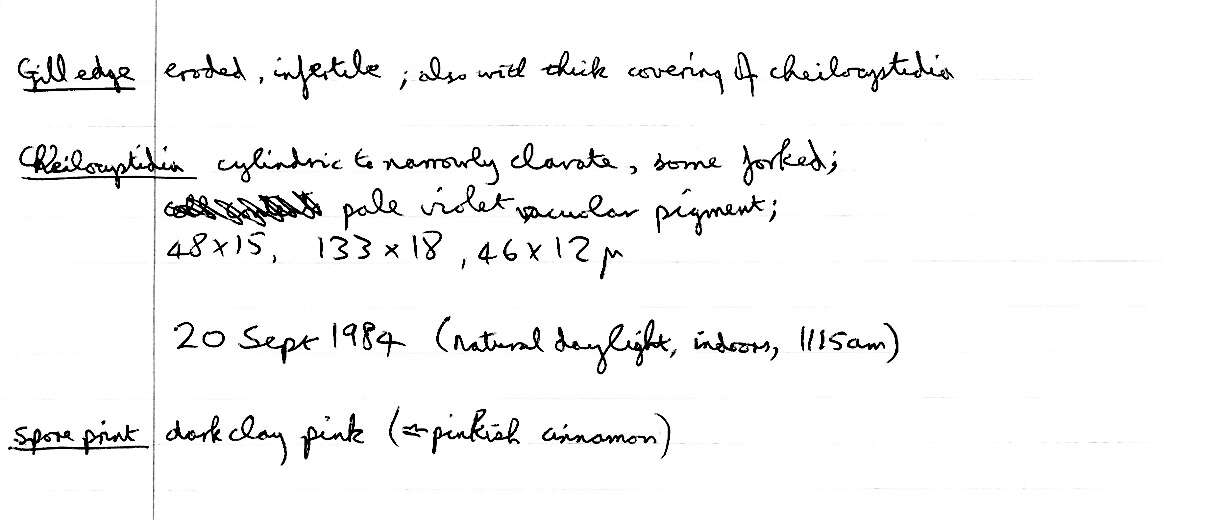 Gill edge eroded, infertile; also with thick covering of cheilocystidia
Cheilocystidia cylindric to narrowly clavate, some forked;
pale violet vacuolar pigment;
48 x 15, 133 x 18, 46 x 12 μ
20 Sept 1984 (natural daylight, indoors, 1115am)
Spore print dark clay pink (= pinkish cinnamon)